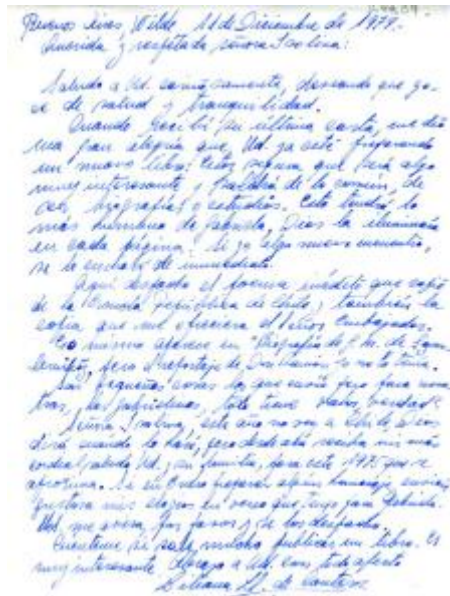 Buenos Aires, Wilde 11 de Diciembre de 1974.-
Querida y respetada señora Isolina:
Saludo a Ud. cariñosamente, deseando que go-
ce de salud y tranquilidad.
Cuando recibí su última carta, me dió
una gran alegría que Ud. ya esté preparando
un nuevo libro. Estoy segura que será algo
muy interesante y saldrá de lo común, de
biografías y estudios. Este tendrá lo
más humano de Gabriela, Dios la ilumine
en cada página. Si yo algo nuevo encuentro,
se lo de inmediato.
Aquí despacho el poema inédito que
de la República de Chile, también la
copia que me el señor Embajador.
Lo mismo aparece en "Biografía de G. M. de
pero el reportaje de no lo tenía.
Son pequeñas cosas las que envío pero para noso-
tras, las gabrielinas, todo tiene
Señora Isolina, este año no voy a Chile,
cuando lo haré, pero desde ahí reciba mi más
cordial saludo Ud. y su familia, para este 1975 que se
aproxima. Si en algún homenaje,
gustosa mis elogios en verso que tengo para Gabriela.
Ud. me avisa, por favor y se los despacho.
Cuénteme si sale mucho publicar un libro. Es
muy interesante. Abrazo a Ud. con todo afecto
de